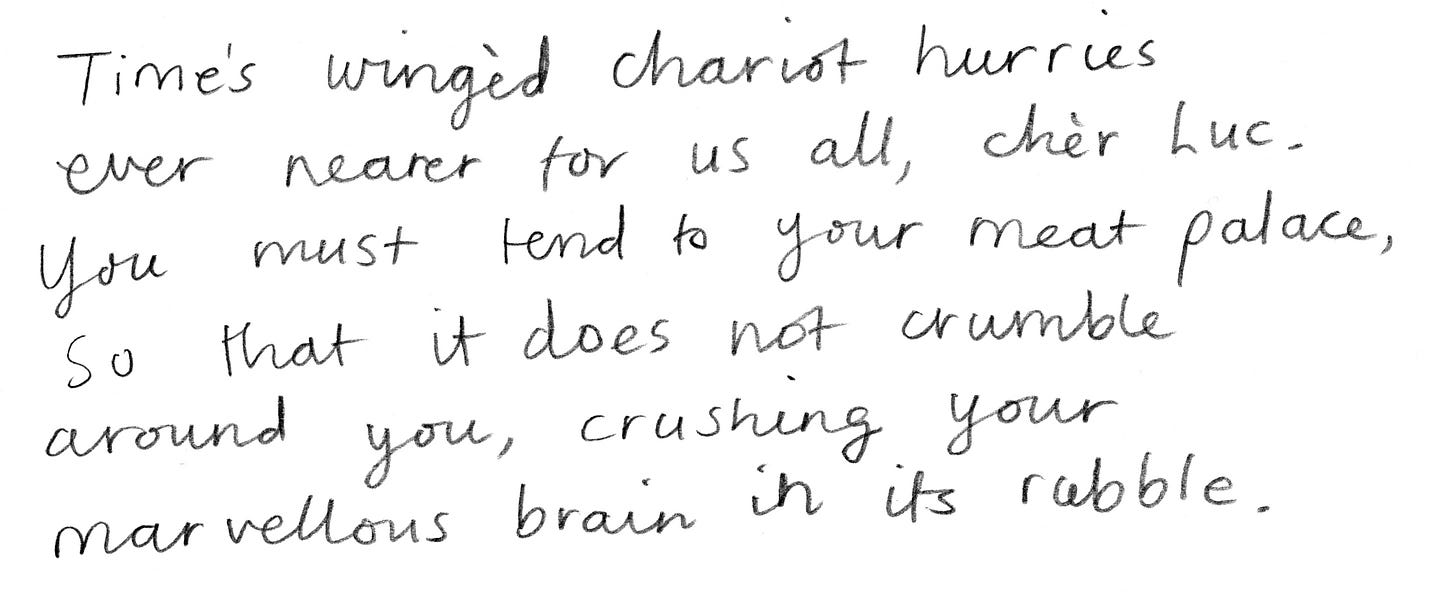 Time's wingèd chariot hurries
ever nearer for us all, chèr Luc.
You must tend to your meat palace,
So that it does not crumble
around you, crushing your
marvellous brain in its rubble.